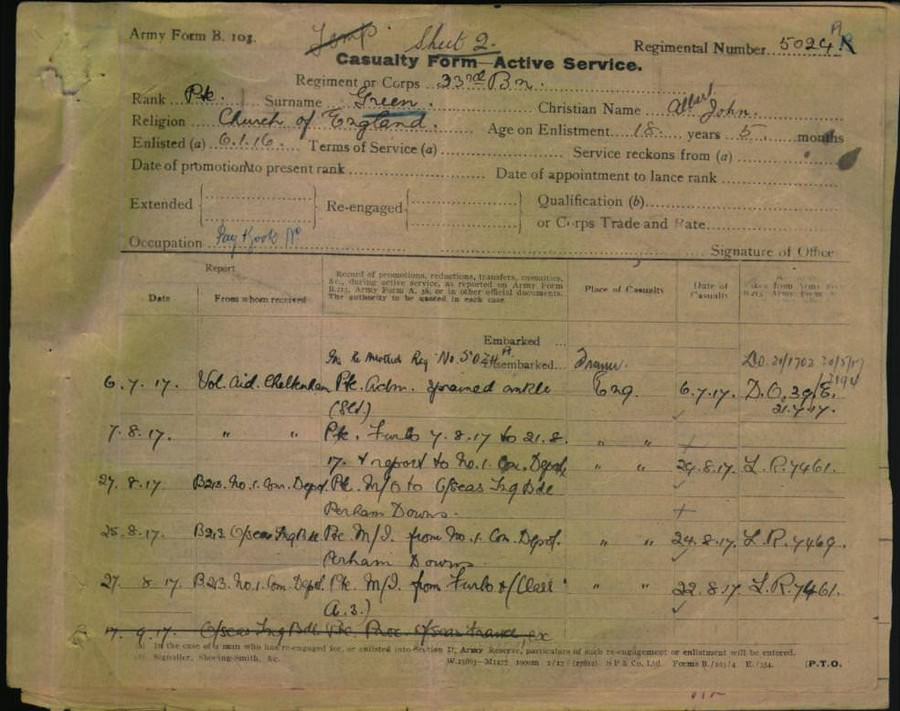 Army Form B. 103.
Temp Sheet 2.
Regimental Number 5024 A
Casualty Form—Active Service.
Regiment or Corps 33rd Bn.
Rank Pte. Surname Green. Christian Name Albert John.
Religion Church of England. Age on Enlistment 18 years 5 months
Enlisted (a) 6.1.16. Terms of Service (a) Service reckons from (a)
Date of promotion to present rank Date of appointment to lance rank
Extended Re-engaged Qualification (b)
or Corps Trade and Rate
Occupation Pay Book No
Signature of Office
Report
Date From whom received
Record of promotions, reductions, transfers, casualties, &c., during active service, as reported on Army Form B.213, Army Form A. 36, or in other official documents. The authority to be quoted in each case.
Place of Casualty
Date of Casualty
Embarked
Disembarked
6.7.17. Vol. Aid. Cheltenham Pte. Adm. sprained ankle Eng 6.7.17. D.O. 39/E.
(Sld.) 21.7.17.
7.8.17. " " Pte. Furlo 7.8.17 to 21.8. " "
17. & report to No. 1. Con. Depot " " 24.8.17. L.R. 7461.
27.8.17 B213. No. 1. Con. Depot. Pte. M/O to O/seas Trg Bde
Perham Downs.
25.8.17. B213 O/seas Trg Bde. Pte. M/I. from No. 1. Con. Depot. " " 24.8.17. L.R. 7469.
Perham Downs
27.8.17. B213. No. 1. Con. Depot. Pte. M/I. from Furlo " " 22.8.17 L.R. 7461.
17.9.17. O/seas Trg Bde. Pte. Proc. O/seas France, ex
(a) In the case of a man who has re-engaged for, or enlisted into Section D, Army Reserve, particulars of such re-engagement or enlistment will be entered.
Signaller, Shoeing-Smith, &c.
(P.T.O.